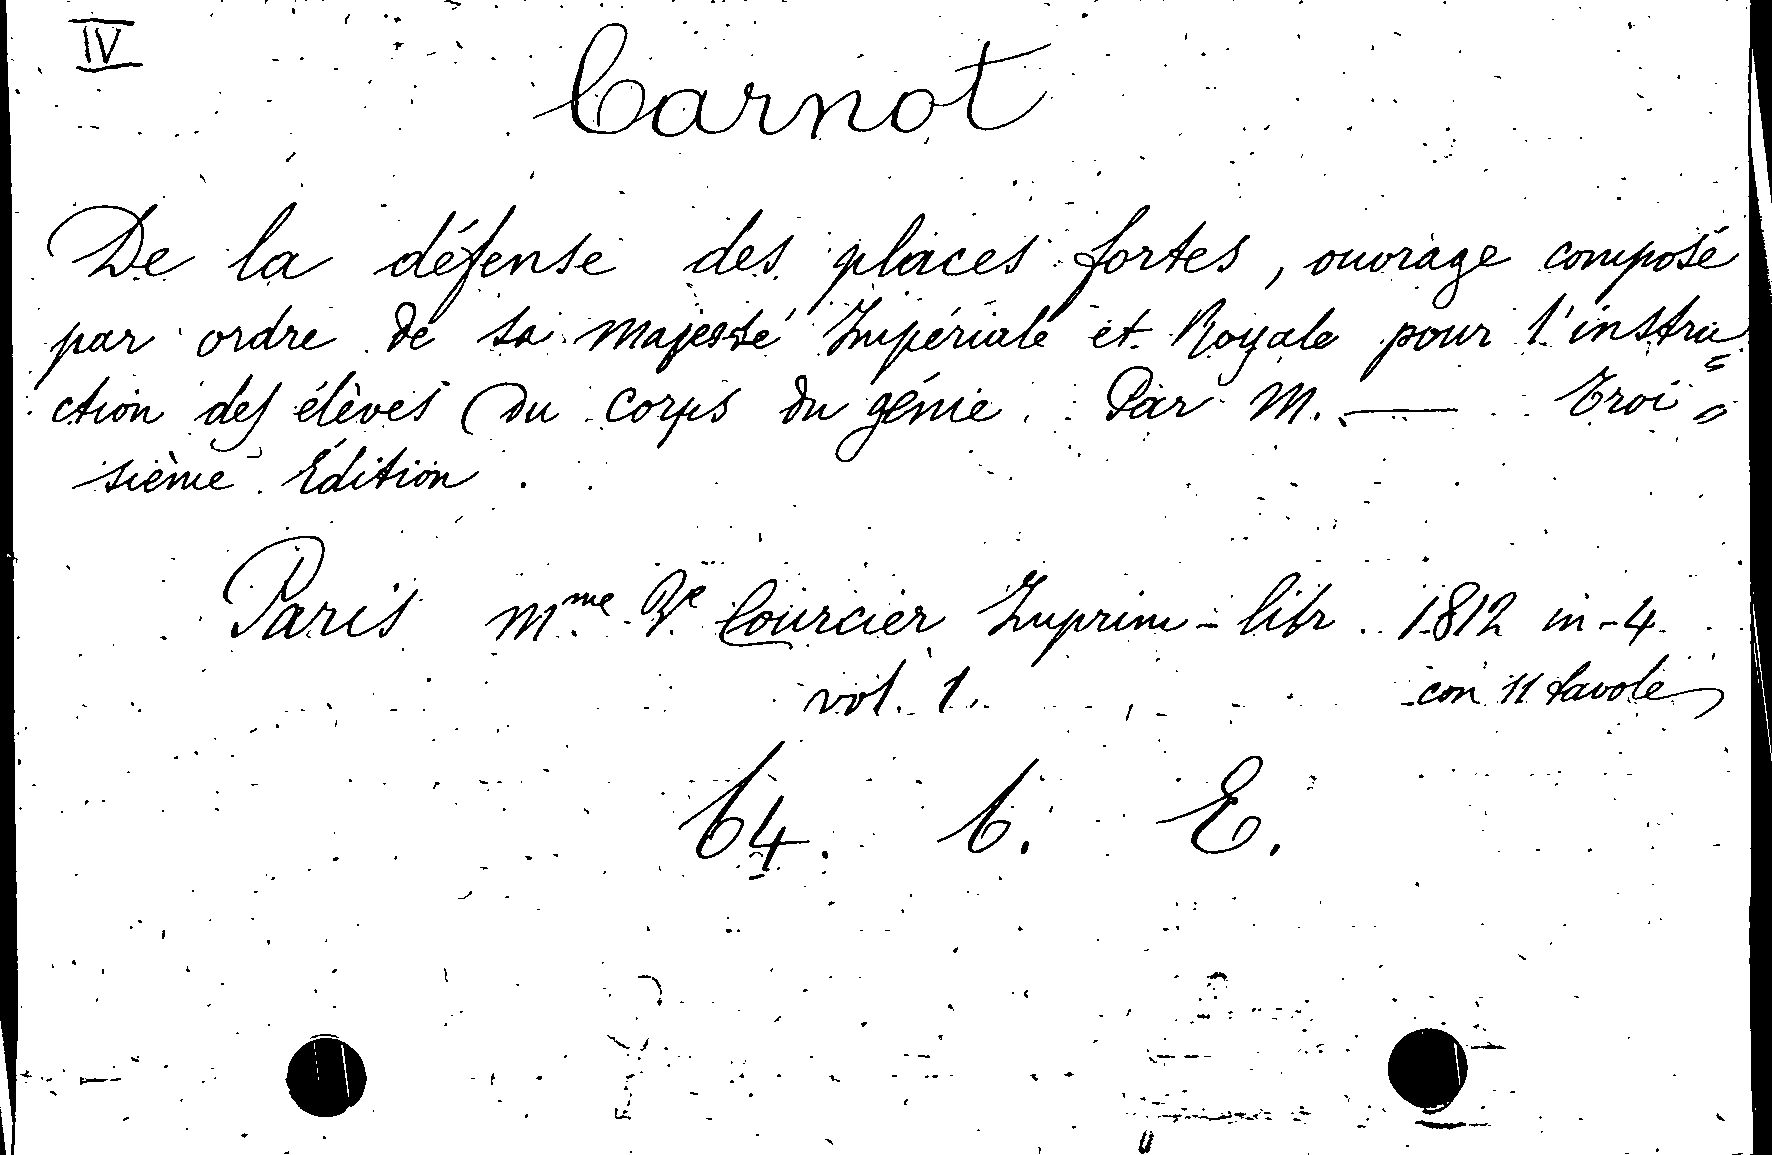 IV
Carnot
De la défense des places fortes, ouvrage composé
par ordre de sa Majesté Impériale et Royale pour l'instru=
ction des élèves du corps du génie. Par M. — Troi=
sième Édition.
Paris Mme Ve Courcier Imprim-libr. 1812 in-4.
vol. 1. con 11 tavole
64. 6. E.